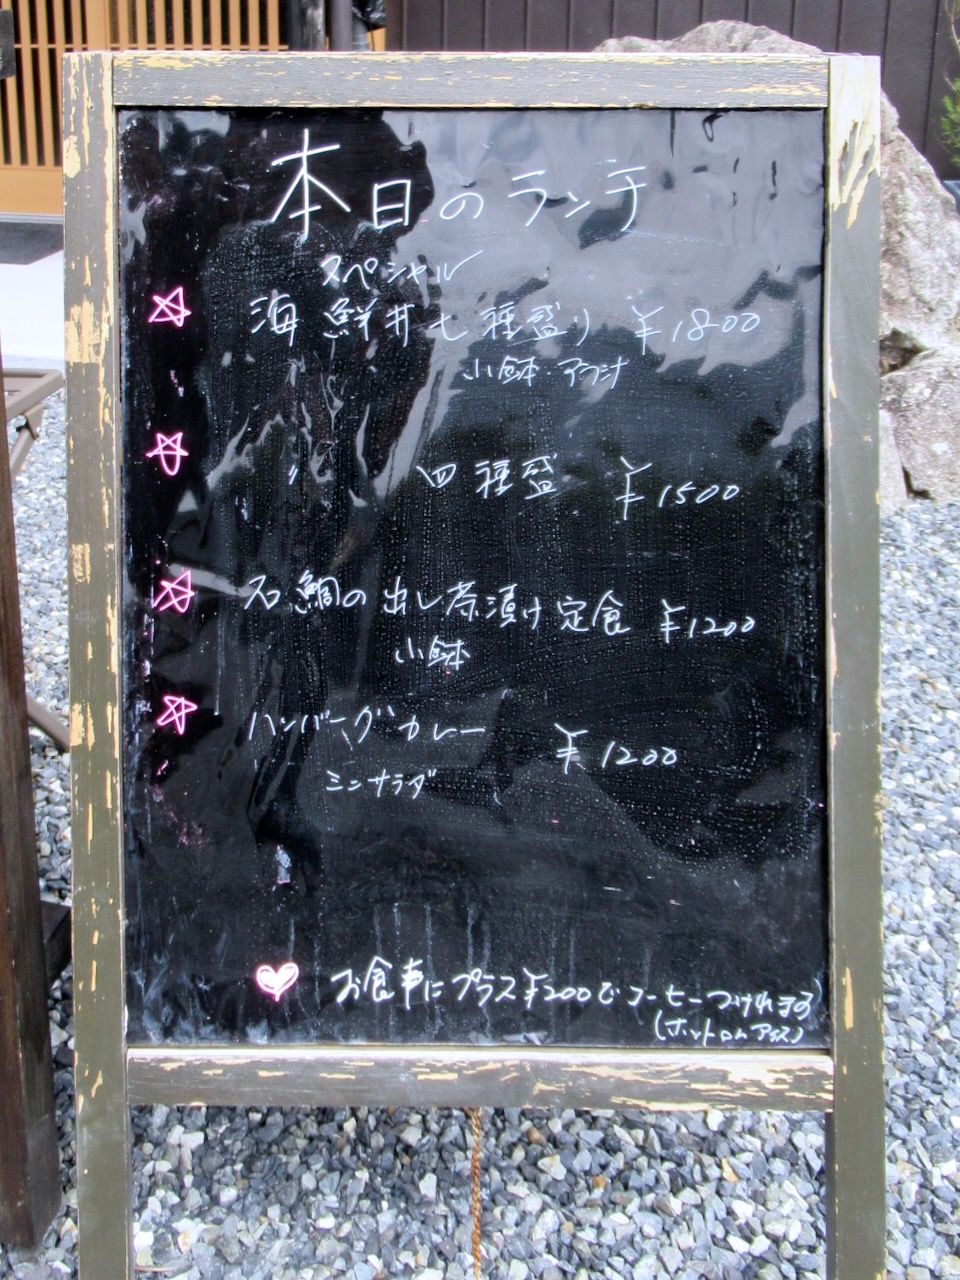 本日のランチ
スペシャル
海鮮丼七種盛り ¥1800
小鉢・アラ汁
〃 四種盛 ¥1500
石鯛の出し茶漬け定食 ¥1200
小鉢
ハンバーグカレー ¥1200
ミニサラダ
お食事にプラス¥200でコーヒーつけれます
(ホットorアイス)